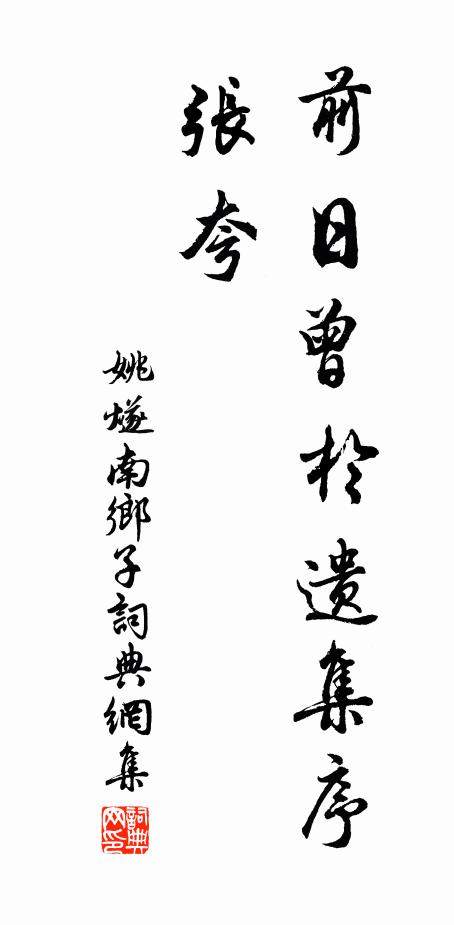 前日曾於遺集序
張夸
姚燧南鄉子詞典網集
詞典網印